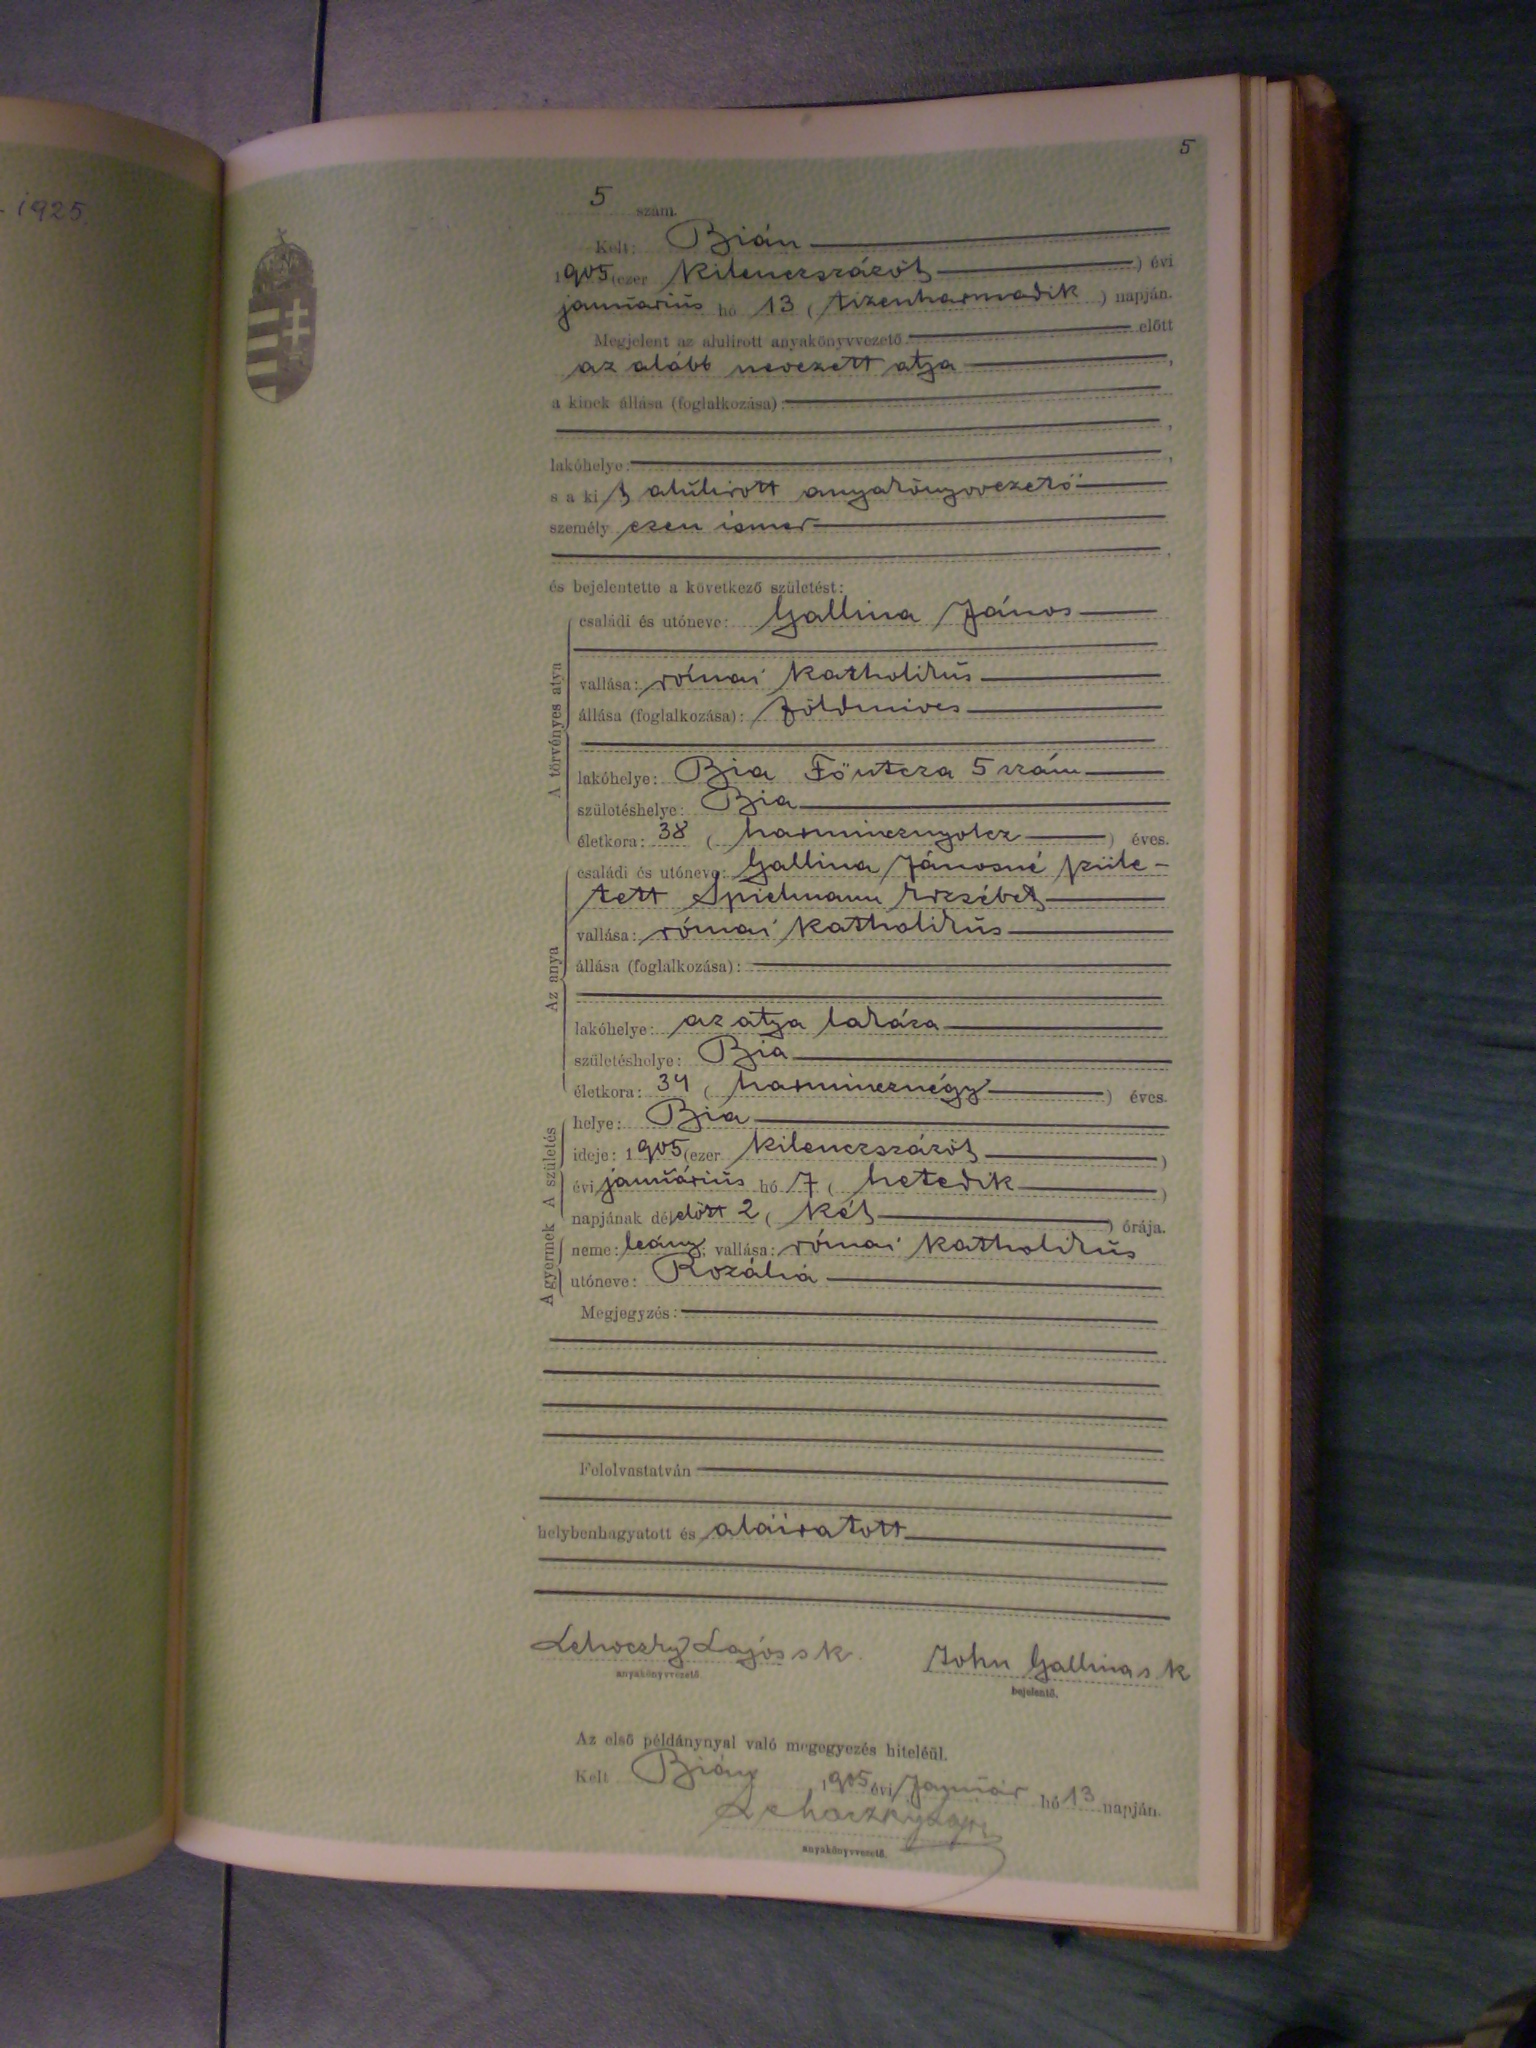 - 1925
5
5 szám.
Kelt: Bián
1905 (ezer kilenczszázöt) évi
januarius hó 13 (tizenharmadik) napján.
Megjelent az alulirott anyakönyvvezető előtt
az alább nevezett atja,
a kinek állása (foglalkozása):
lakóhelye:
s a kit alulirott anyakönyvvezető
személyesen ismer
és bejelentette a következő születést:
A törvényes atya
családi és utóneve: Gallina János
vallása: római katholikus
állása (foglalkozása): földmives
lakóhelye: Bia Föutcza 5 szám
születéshelye: Bia
életkora: 38 (harmincznyolcz) éves.
Az anya
családi és utóneve: Gallina Jánosné szüle-
tett Spielmann Erzsébet
vallása: római katholikus
állása (foglalkozása):
lakóhelye: az atja lakása
születéshelye: Bia
életkora: 34 (harmincznégy) éves.
A születés
helye: Bia
ideje: 1905 (ezer kilenczszázöt)
évi januárius hó 7 (hetedik)
napjának délelött 2 (két) órája.
A gyermek
neme: leány; vallása: római katholikus
utóneve: Rozália
Megjegyzés:
Felolvastatván
helybenhagyatott és aláiratott
Lehoczky Lajos s k. John Gallina s k
anyakönyvvezető bejelentő.
Az első példánynyal való megegyezés hiteléül.
Kelt Bián 1905 évi Január hó 13 napján.
Lehoczky Lajos
anyakönyvvezető.